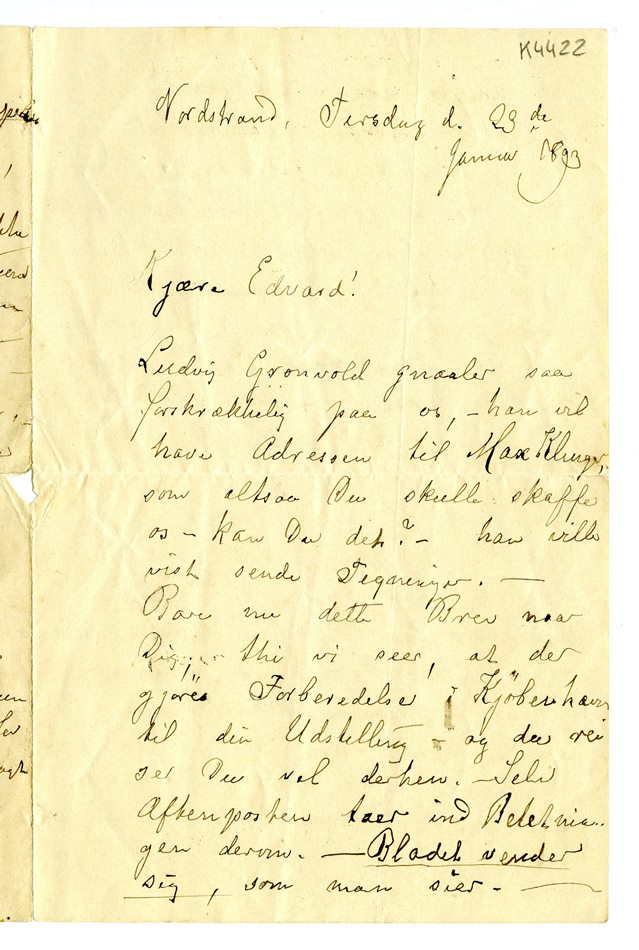 K4422
Nordstrand, Tirsdag d. 23de
Januar 1893
Kjære Edvard!
Ludvig Grønvold gnaaler saa
forskrækkelig paa os, – han vil
have Adressen til Max Klinger,
som altsaa Du skulle skaffe
os – kan Du det? – han ville
vist sende Tegninger. –
Bare nu dette Brev naar
Dig, – thi vi seer, at der
gjøres Forberedelse i Kjøbenhavn
til din Udstilling – og da rei
ser Du vel derhen. – Selv
Aftenposten taer ind Beretnin-
gen derom. – Bladet vender
sig, som man sier. –